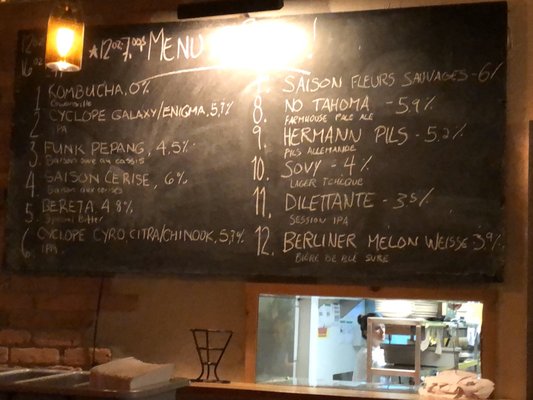 12oz
16oz
*12oz-7.00$ MENU
1 KOMBUCHA, 0%
2 CYCLOPE GALAXY/ENIGMA, 5,7%
IPA
3. FUNK PEPANG, 4,5%
Saison sure au cassis
4. SAISON CERISE, 6%
Saison aux cerises
5. BERETA, 4.8%
Special Bitter
6. CYCLOPE CYRO, CITRA/CHINOOK, 5,7%
IPA
SAISON FLEURS SAUVAGES - 6%
8. NO TAHOMA - 5,9%
FARMHOUSE PALE ALE
9. HERMANN PILS - 5.2%
PILS ALLEMANDE
10. SOVY - 4%
LAGER TCHÈQUE
11. DILETTANTE - 3.5%
SESSION IPA
12. BERLINER MELON WEISSE 3.9%
BIÈRE DE BLÉ SURE